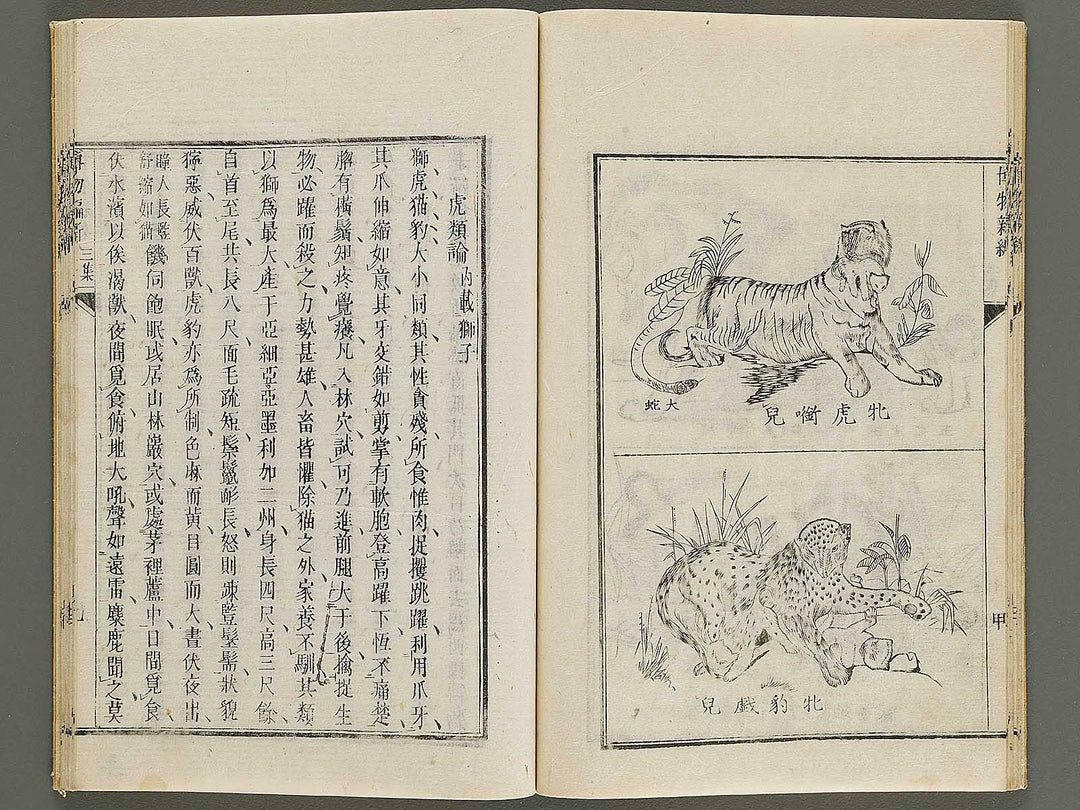 牝虎啣兒
大蛇
牝豹戲兒
甲
虎類論 內載獅子
獅虎猫豹大小同類其性貪殘所食惟肉捉攫跳躍利用爪牙
其爪伸縮如意其牙交錯如剪掌有軟胞登高躍下恆不痛楚
脣有橫鬚知疼覺癢凡入林穴試可乃進前腿大于後擒捉生
物必躍而殺之力勢甚雄人畜皆懼除猫之外家養不馴其類
以獅爲最大產于亞細亞亞墨利加二州身長四尺高三尺餘
自首至尾共長八尺面毛疏短鬃鬣耏長怒則竦豎髵狀貌
獰惡威伏百獸虎豹亦爲所制色麻而黃目圓而大晝伏夜出
瞳人長豎舒縮如猫饑伺飽眠或居山林巖穴或處茅裡蘆中日間覓食
伏水濱以俟渴獸夜間覓食俯地大吼聲如遠雷麋鹿聞之莫
三集
九